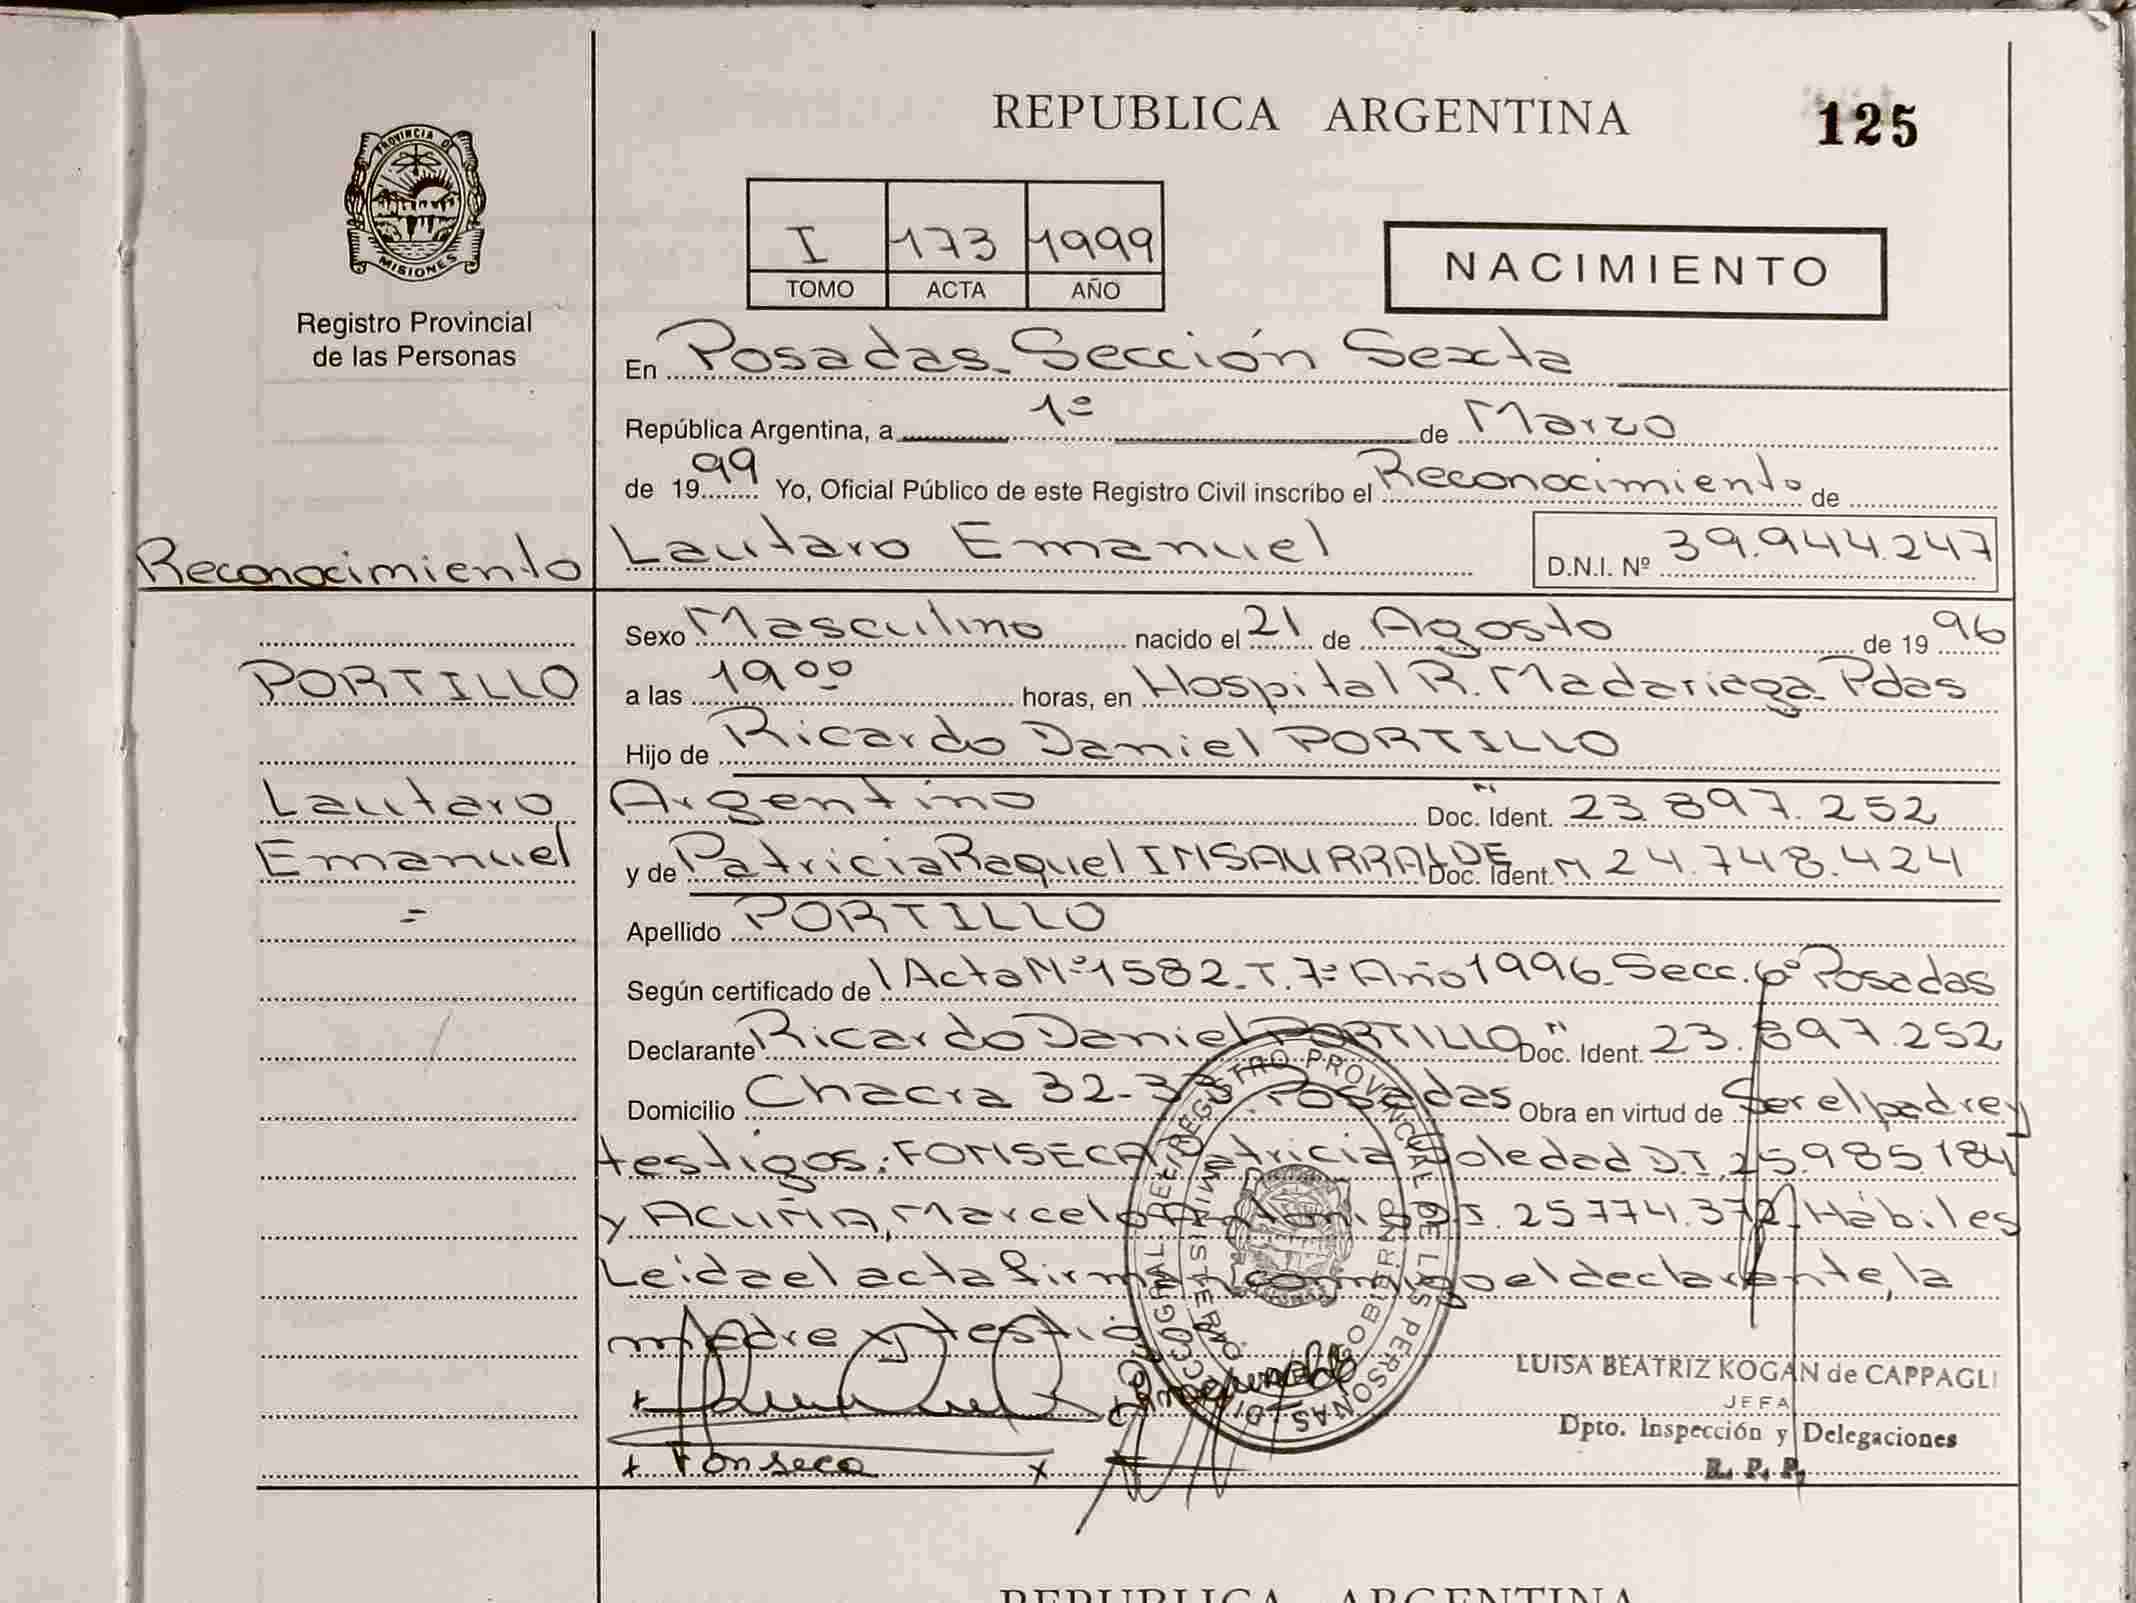 REPUBLICA ARGENTINA
125
PROVINCIA DE
MISIONES
Registro Provincial
de las Personas
I 173 1999
TOMO ACTA AÑO
NACIMIENTO
En Posadas_ Sección Sexta
República Argentina, a 1º de Marzo
de 1999 Yo, Oficial Público de este Registro Civil inscribo el Reconocimiento de
Reconocimiento
Lautaro Emanuel D.N.I. Nº 39.944.247
Sexo Masculino nacido el 21 de Agosto de 1996
PORTILLO
a las 19⁰⁰ horas, en Hospital R. Madariaga_ Pdas
Hijo de Ricardo Daniel PORTILLO
Lautaro
Argentino Doc. Ident. 23.897.252
Emanuel
y de Patricia Raquel INSAURRALDE Doc. Ident. N 24.748.424
=
Apellido PORTILLO
Según certificado del Acta Nº 1582_ T. 7º Año 1996_ Secc. 6º Posadas
Declarante Ricardo Daniel PORTILLO Doc. Ident. 23.897.252
Domicilio Chacra 32-33 Posadas Obra en virtud de Ser el padre y
testigos: FONSECA Patricia Soledad D.I. 25.985.184
y ACUÑA, Marcelo Antonio D.I. 25774.372_ Hábiles
Leida el acta firman conmigo el declarante, la
madre y testigo
REGISTRO PROVINCIAL DE LAS PERSONAS
MINISTERIO DE GOBIERNO
LUISA BEATRIZ KOGAN de CAPPAGLI
JEFA
Dpto. Inspección y Delegaciones
R. P. P.
Fonseca
REPUBLICA ARGENTINA